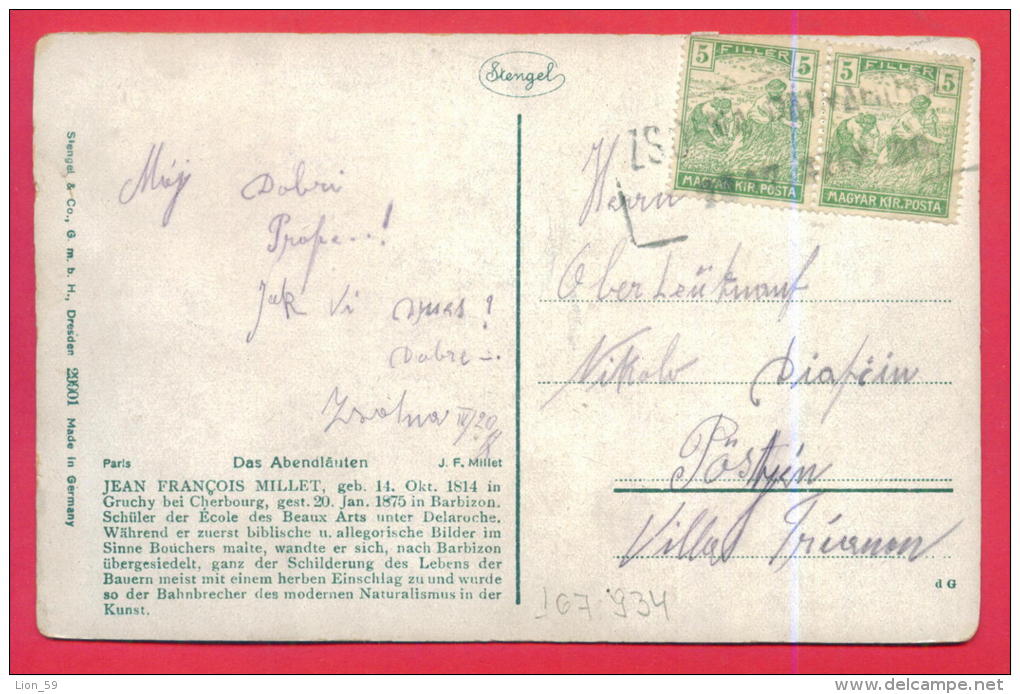 Stengel
5 FILLER 5
MAGYAR KIR. POSTA
5 FILLER 5
MAGYAR KIR. POSTA
ZS
Stengel & Co., G. m. b. H., Dresden 29901 Made in Germany
Dobri
Jak Vi
Dobre
Zsolna
Herrn
Nikolo
Pöstyén
Villa Trianon
Paris Das Abendläuten J. F. Millet
JEAN FRANÇOIS MILLET, geb. 14. Okt. 1814 in
Gruchy bei Cherbourg, gest. 20. Jan. 1875 in Barbizon.
Schüler der École des Beaux Arts unter Delaroche.
Während er zuerst biblische u. allegorische Bilder im
Sinne Bouchers malte, wandte er sich, nach Barbizon
übergesiedelt, ganz der Schilderung des Lebens der
Bauern meist mit einem herben Einschlag zu und wurde
so der Bahnbrecher des modernen Naturalismus in der
Kunst.
d G
167 934
Lion_59